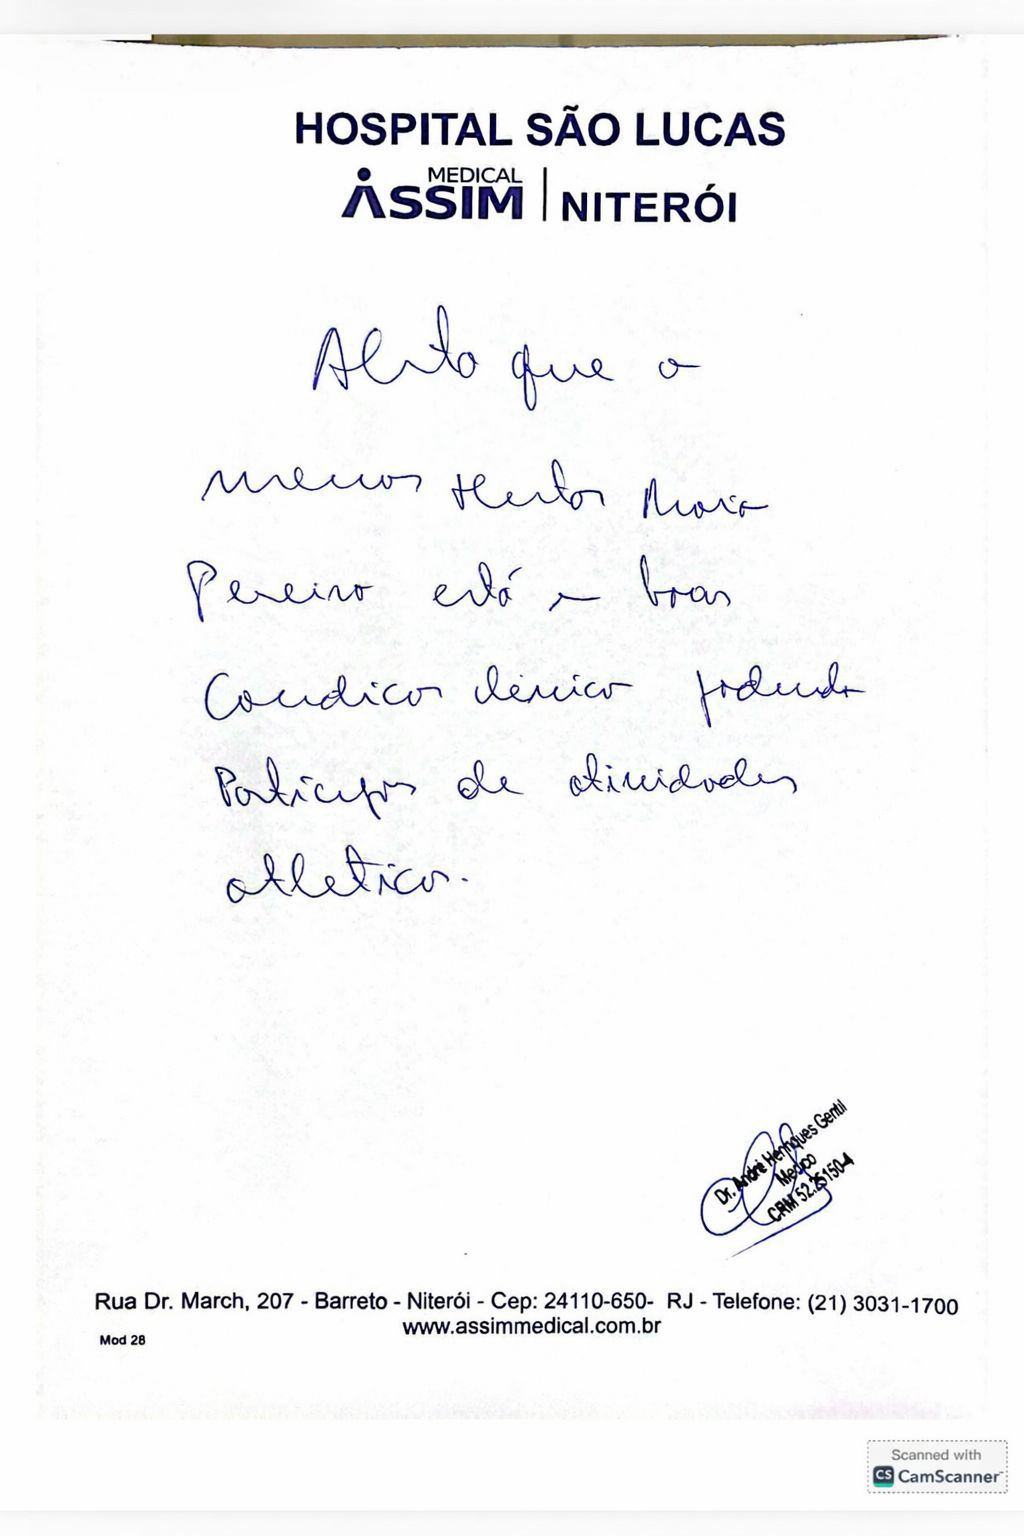 HOSPITAL SÃO LUCAS
MEDICAL
ASSIM | NITERÓI
Atesto que o
menor Heitor Maia
Pereira está em boas
Condições clínicas podendo
Participar de atividades
atléticas.
Dr. André Henriques Gentil
Médico
CRM 52.25150-4
Rua Dr. March, 207 - Barreto - Niterói - Cep: 24110-650- RJ - Telefone: (21) 3031-1700
www.assimmedical.com.br
Mod 28
Scanned with
CS CamScanner